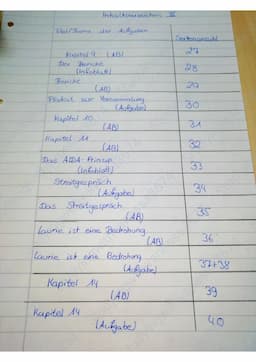 Inhaltsverzeichnis II
Titel/Thema der Aufgaben Seitenanzahl
Kapitel 9 (AB) 27
Der Bericht
(Infoblatt) 28
Bericht
(AB) 29
Plakat zur Versammlung
(Aufgabe) 30
Kapitel 10
(AB) 31
Kapitel 11
(AB) 32
Das AIDA-Prinzip
(Infoblatt) 33
Streitgespräch
(Aufgabe) 34
Das Streitgespräch
(AB) 35
Laurie ist eine Bedrohung
(AB) 36
Laurie ist eine Bedrohung
(Aufgabe) 37+38
Kapitel 14
(AB) 39
Kapitel 14
(Aufgabe) 40